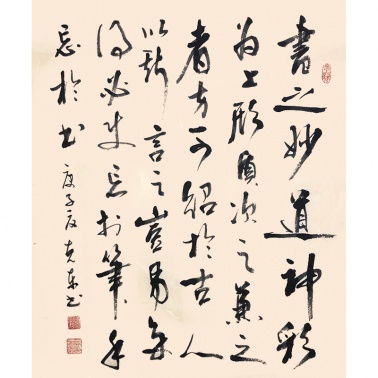 書之妙道神彩
為上形質次之兼之
者方可紹於古人
以斯言之豈易多
得必使忘於筆手
忘於书
庚子夏克東书